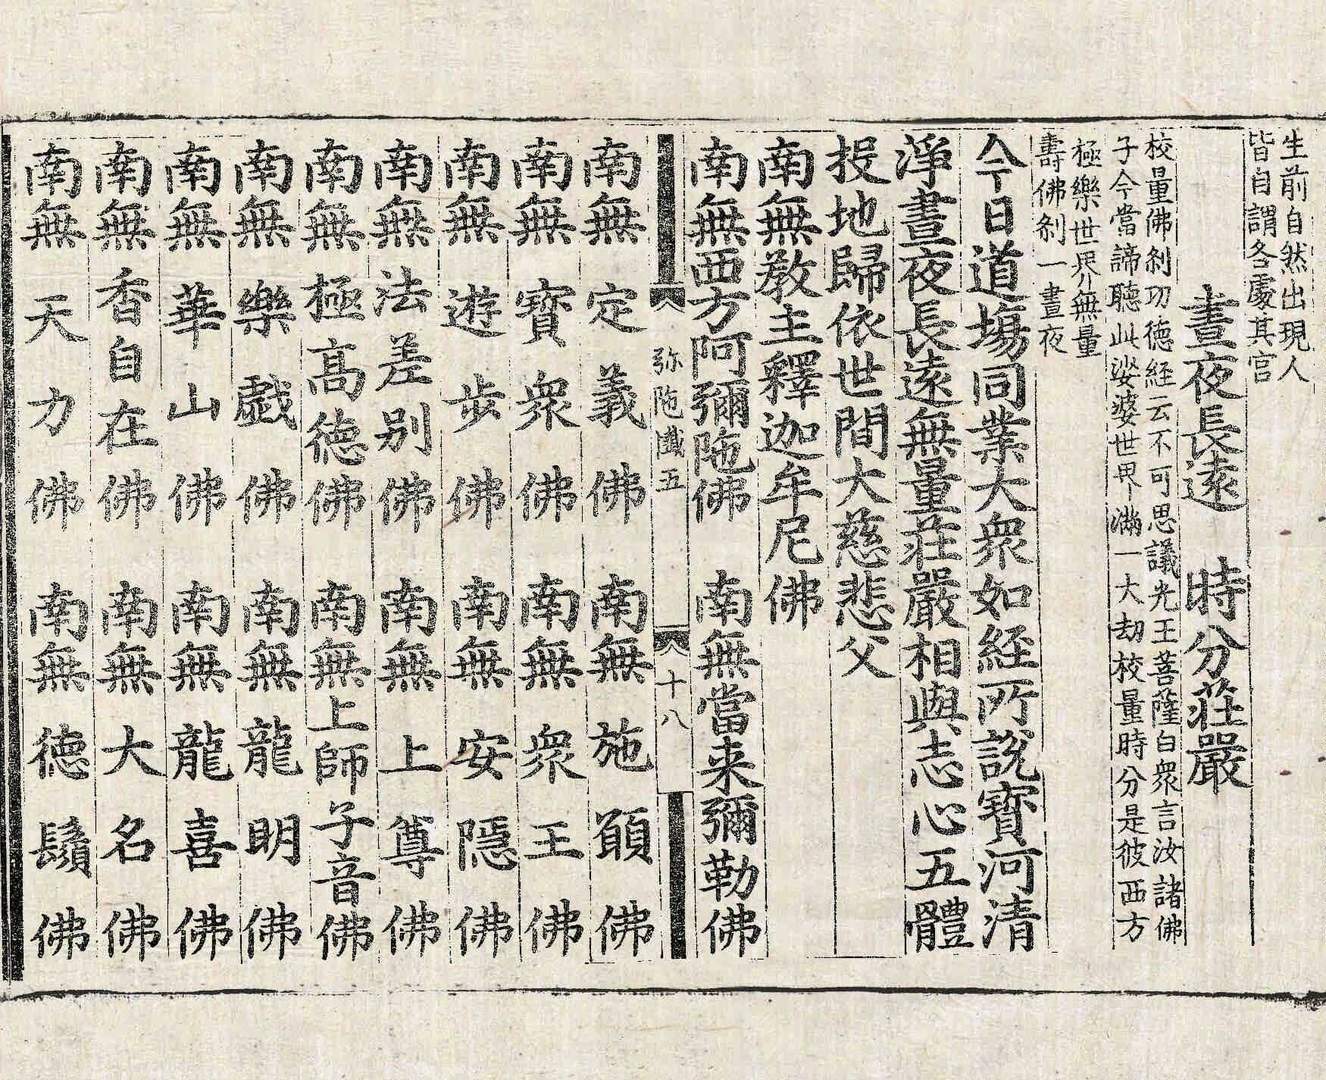 生前自然出現人
皆自謂各處其宮
晝夜長遠　時分莊嚴
校量佛刹功德經云不可思議光王菩薩白衆言汝諸佛
子今當諦聽此娑婆世界滿一大劫校量時分是彼西方
極樂世界無量
壽佛刹一晝夜
今日道塲同業大衆如經所說寶河清
淨晝夜長遠無量莊嚴相與志心五體
投地歸依世間大慈悲父
南無教主釋迦牟尼佛
南無西方阿彌陁佛　南無當來彌勒佛
弥陁懴五　十八
南無定義佛　南無施願佛
南無寶衆佛　南無衆王佛
南無遊步佛　南無安隱佛
南無法差别佛　南無上尊佛
南無極高德佛　南無上師子音佛
南無樂戲佛　南無龍明佛
南無華山佛　南無龍喜佛
南無香自在佛　南無大名佛
南無天力佛　南無德鬚佛